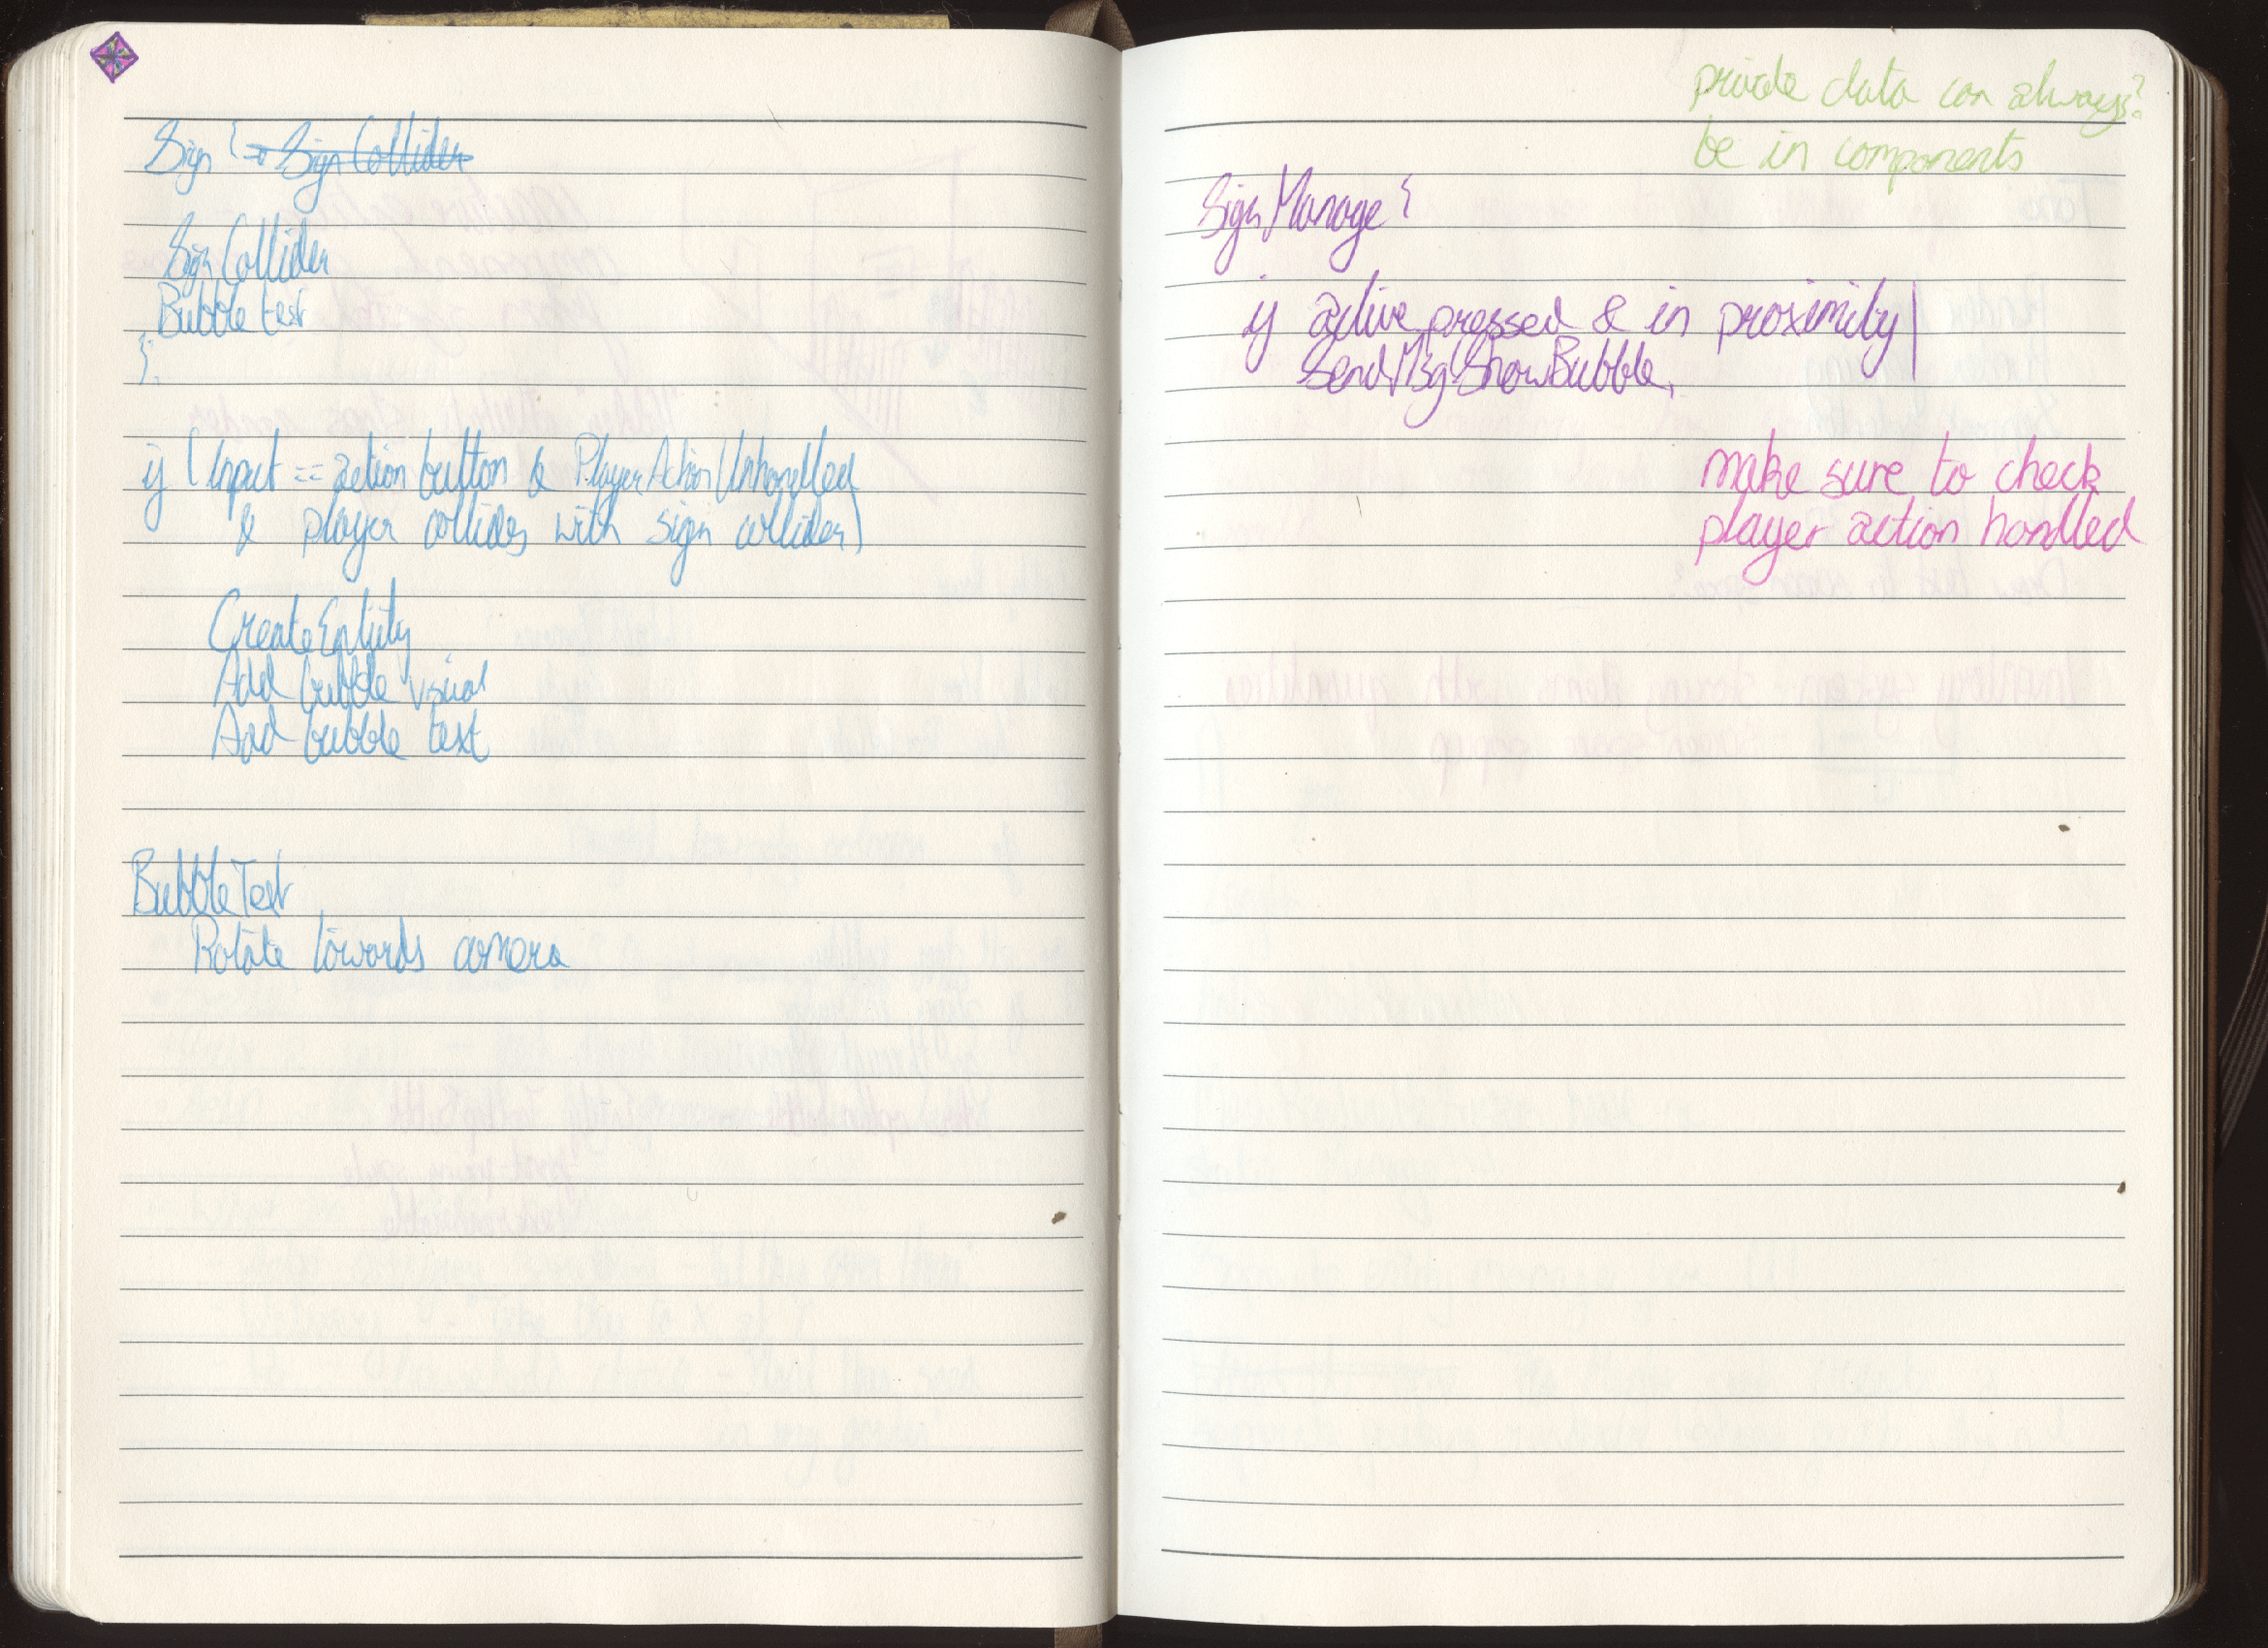 Sign { ~~→ Sign Collider~~
Sign Collider
Bubble text
};
if (Input == action button & PlayerActionUnhandled
& player collides with sign collider)
CreateEntity
Add bubble visual
Add bubble text
BubbleText
Rotate towards camera
private data can always?
be in components
SignManage {
if active pressed & in proximity
SendMsgShowBubble,
make sure to check
player action handled